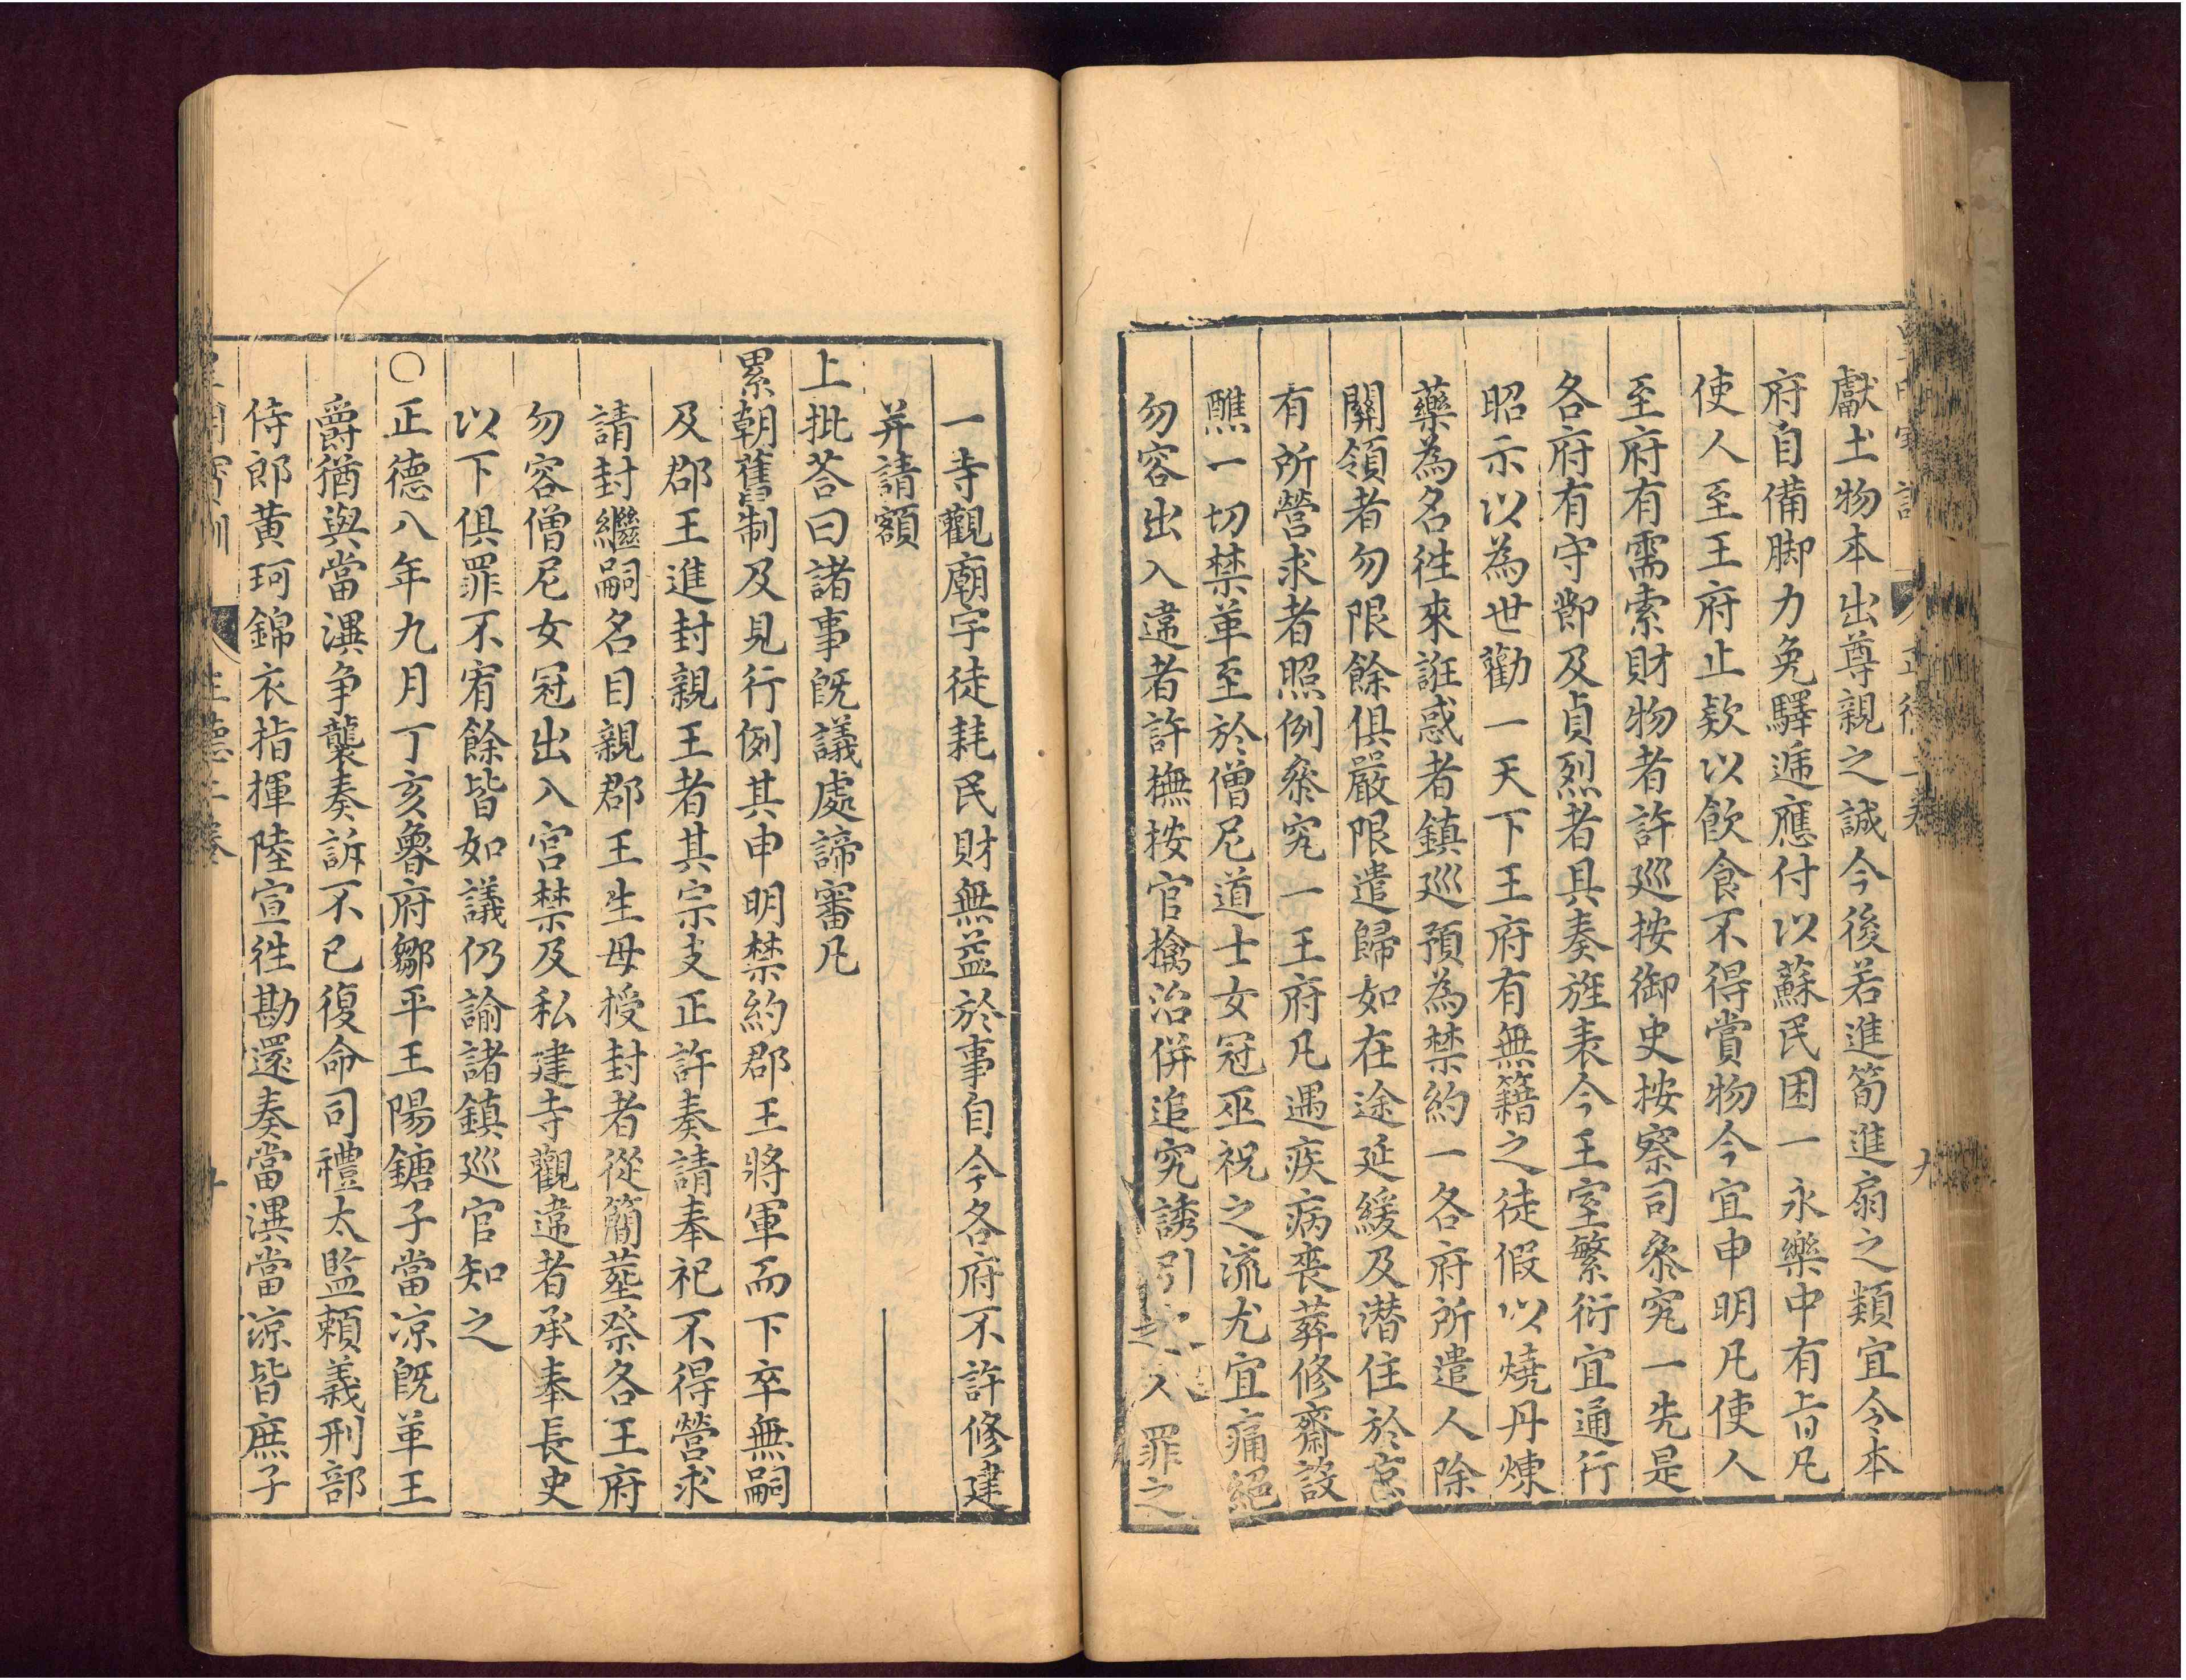 獻土物本出尊親之誠今後若進筍進扇之類宜令本
府自備脚力免驛逓應付以蘇民困一永樂中有旨凡
使人至王府止欵以飲食不得賞物今宜申明凡使人
至府有需索財物者許廵按御史按察司叅究一先是
各府有守節及貞烈者具奏旌表今王室繁衍宜通行
昭示以為世勸一天下王府有無籍之徒假以燒丹煉
藥為名徃來誑惑者鎮廵預為禁約一各府所遣人除
關領者勿限餘俱嚴限遣歸如在途延緩及潜住於京
有所營求者照例叅究一王府凡遇疾病喪葬修齋設
醮一切禁革至於僧尼道士女冠巫祝之流尤宜痛絕
勿容出入違者許撫按官擒治併追究誘引之人罪之
一寺觀廟宇徒耗民財無益於事自今各府不許修建
并請額
上批荅曰諸事旣議處諦審凡
累朝舊制及見行例其申明禁約郡王將軍而下卒無嗣
及郡王進封親王者其宗支正許奏請奉祀不得營求
請封繼嗣名目親郡王生母授封者從簡塟祭各王府
勿容僧尼女冠出入宮禁及私建寺觀違者承奉長史
以下俱罪不宥餘皆如議仍諭諸鎮廵官知之
○正德八年九月丁亥魯府鄒平王陽鏞子當凉旣革王
爵猶與當潩争襲奏訴不已復命司禮太監賴義刑部
侍郎黃珂錦衣指揮陸宣徃勘還奏當潩當凉皆庶子